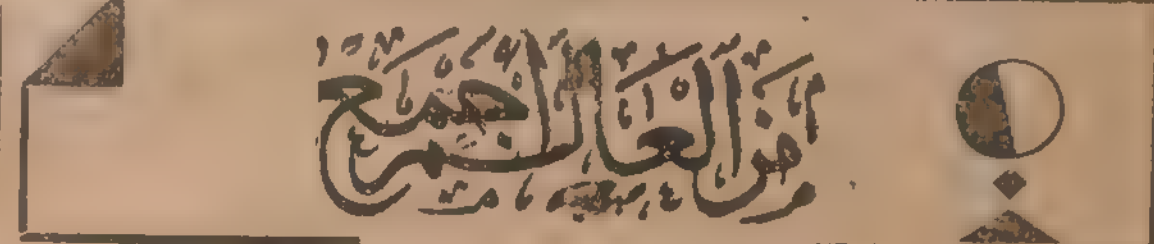 من العالم اجمع